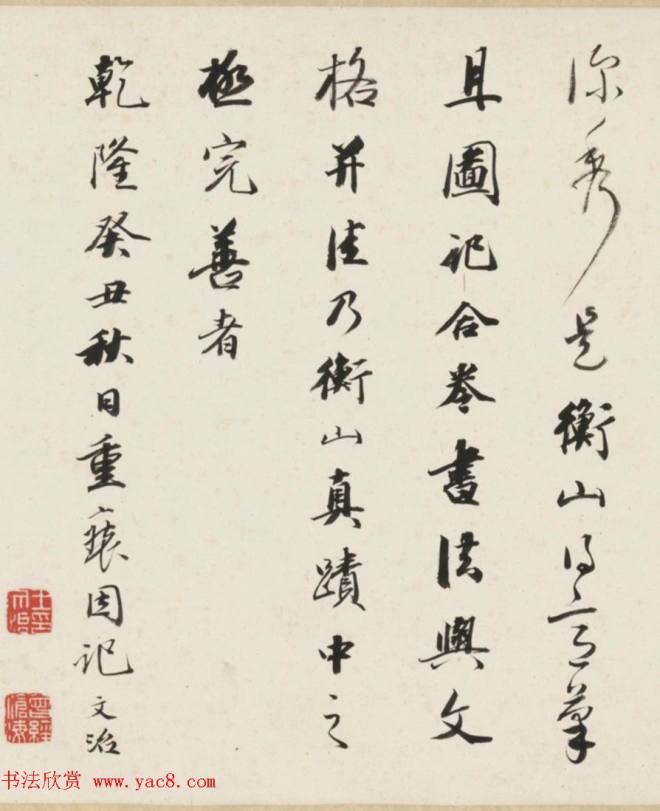 深秀是衡山得意筆
且圖記合卷書法與文
格并佳乃衡山真蹟中之
極完善者
乾隆癸丑秋日重裝因記 文治
王文治印
曾經滄海
书法欣赏 www.yac8.com